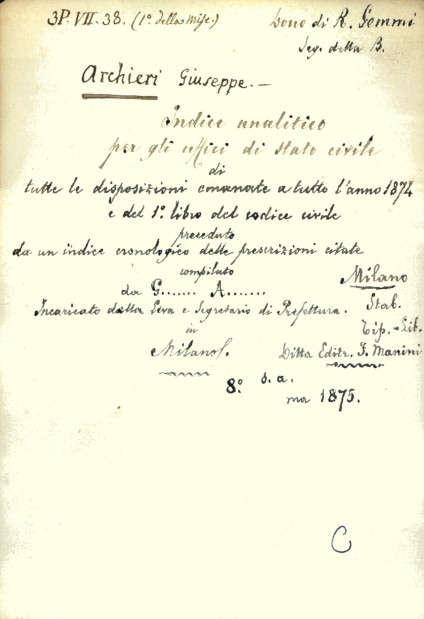 3P. VII. 38. (1º. della Misc.)
Dono di R. Gemmi
Seg. della B.
Archieri Giuseppe. —
Indice analitico
per gli uffici di stato civile
di
tutte le disposizioni emanate a tutto l'anno 1874
e del 1º. libro del codice civile
preceduto
da un indice cronologico delle prescrizioni citate
compilato
da G....... A.......
Incaricato della Leva e Segretario di Prefettura.
in
Milano.
Milano
Stab.
Tip. - Lib.
Ditta Editr. F. Manini
8º. s. a.
ma 1875.
C